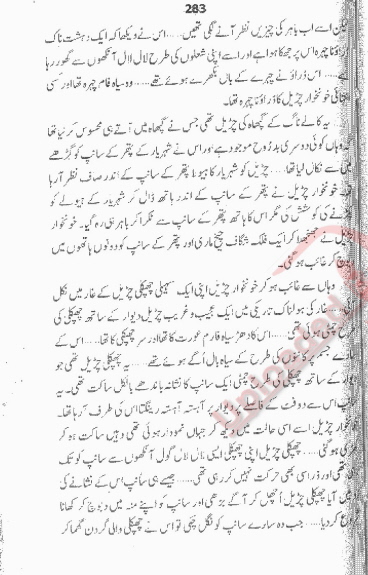 283
لیکن اسے اب باہر کی چیزیں نظر آنے لگی تھیں...... اس نے دیکھا کہ ایک دہشت ناک
ڈراؤنا چہرہ اس پر جھکا ہوا ہے اور اسے اپنی شعلوں کی طرح لال لال آنکھوں سے گھور رہا
ہے...... اس ڈراؤنے چہرے کے بال بکھرے ہوئے تھے...... وہ سیاہ فام چہرہ تھا اور کسی
انتہائی خونخوار چڑیل کا ڈراؤنا چہرہ تھا۔
...... یہ کالے ناگ کے گچھاہ کی چڑیل تھی جس نے گچھاہ میں آتے ہی محسوس کر لیا تھا
کہ وہاں کوئی دوسری بدروح موجود ہے اور اس نے شہریار کے پتھر کے سانپ کو گڑھے
میں سے نکال لیا تھا...... چڑیل کو شہریار کا ہیولا پتھر کے سانپ کے اندر صاف نظر آ رہا
تھا۔ خونخوار چڑیل نے پتھر کے سانپ کے اندر ہاتھ ڈال کر شہریار کے ہیولے کو
پکڑنے کی کوشش کی مگر اس کا ہاتھ پتھر کے سانپ سے ٹکرا کر باہر ہی رہ گیا۔ خونخوار
چڑیل نے جھنجھلا کر ایک فلک شگاف چیخ ماری اور پتھر کے سانپ کو دونوں ہاتھوں میں
دبوچ کر غائب ہو گئی۔
وہاں سے غائب ہو کر خونخوار چڑیل اپنی ایک سہیلی چھپکلی چڑیل کے غار میں نکل
آئی...... غار کی ہولناک تاریکی میں ایک عجیب و غریب چڑیل دیوار کے ساتھ چھپکلی کی
طرح چمٹی ہوئی تھی...... اس کا دھڑ سیاہ فارم عورت کا تھا اور سر چھپکلی کا تھا...... اس کے
سارے جسم پر کانٹوں کی طرح کے سیاہ بال اُگے ہوئے تھے...... یہ چھپکلی چڑیل تھی جو
دیوار کے ساتھ چھپکلی کی طرح چمٹی ایک سانپ کا نشانہ باندھے بالکل ساکت تھی۔ یہ
سانپ اس سے دو فٹ کے فاصلے پر دیوار پر آہستہ آہستہ رینگتا اس کی طرف آ رہا تھا۔
خونخوار چڑیل اسے اسی حالت میں دیکھ کر جہاں نمودار ہوئی تھی وہیں ساکت ہو کر
کھڑی ہو گئی...... چھپکلی چڑیل اپنی چھپکلی ایسی لال لال گول آنکھوں سے سانپ کو تک
رہی تھی اور ذرا سی بھی حرکت نہیں کر رہی تھی...... جیسے ہی سانپ اس کے نشانے کی
میں آیا چھپکلی چڑیل اُچھل کر آگے بڑھی اور سانپ کو اپنے منہ میں دبوچ کر کھانا
شروع کر دیا...... جب وہ سارے سانپ کو نگل چکی تو اس نے چھپکلی والی گردن گھما کر